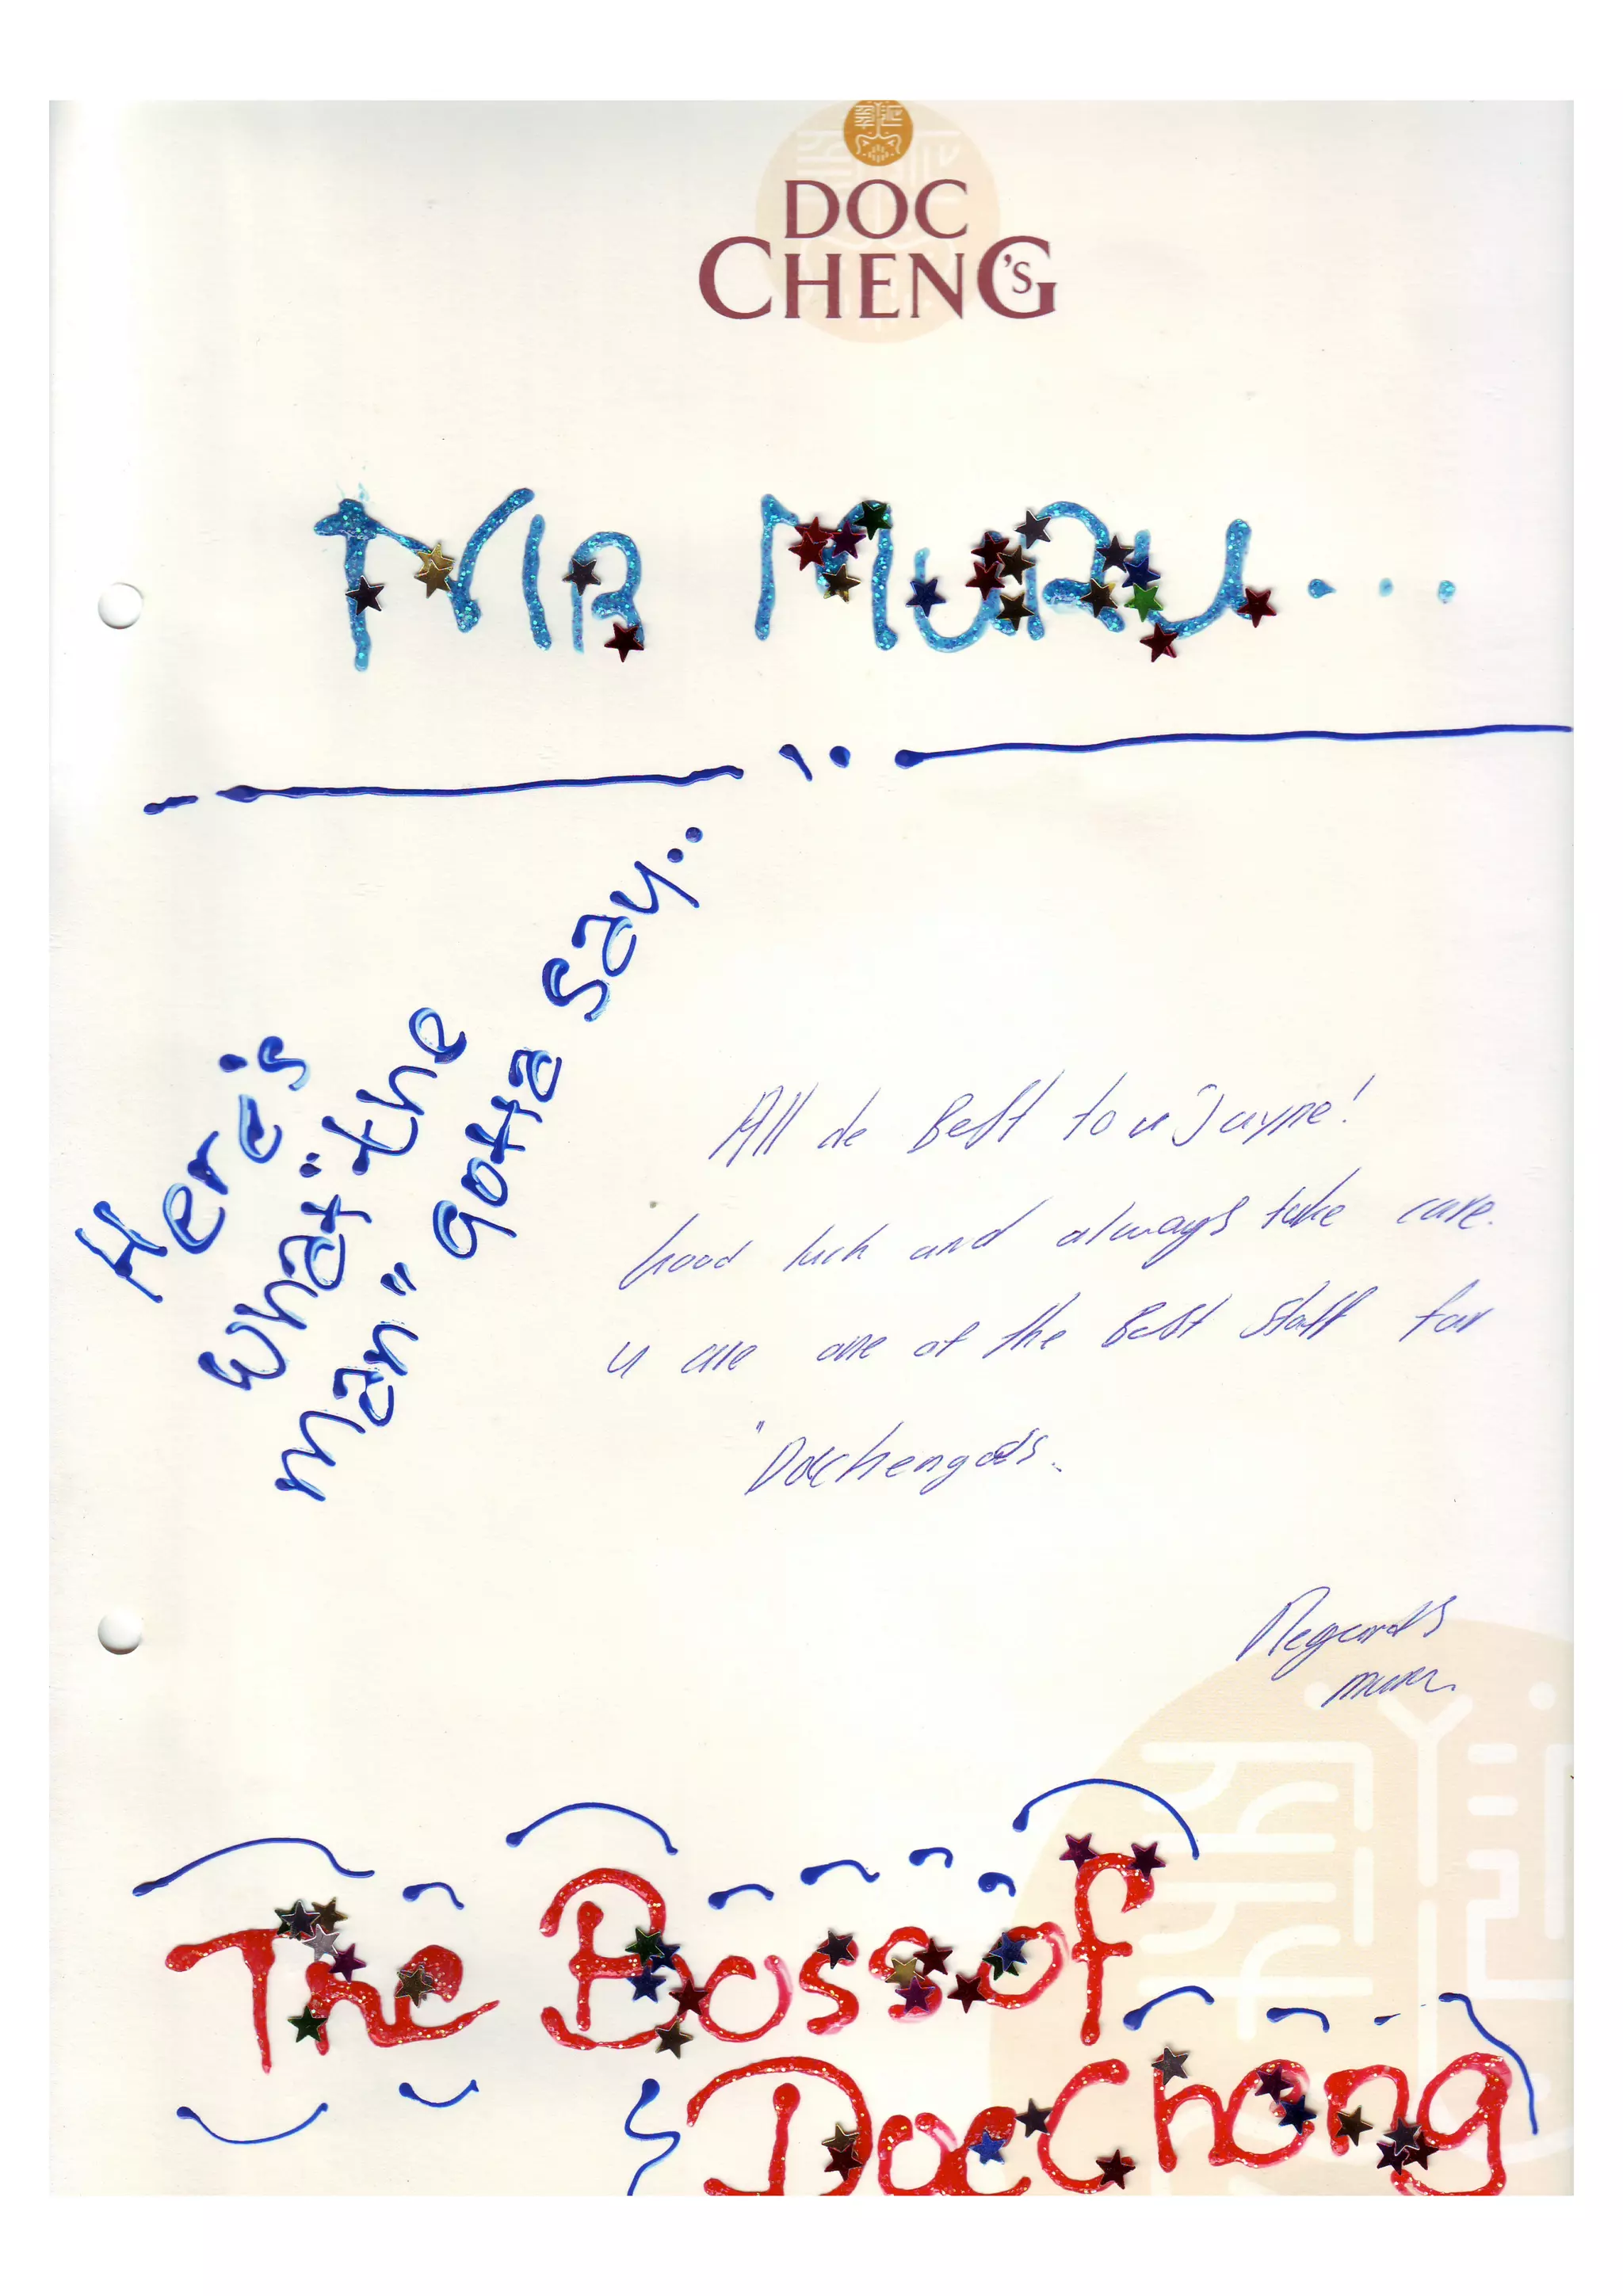 DOC
CHENG'S
MR MURU...
Here's
What "the
man" gotta say..
All de Best to u Jayne!
Good luck and always take care.
u are one of the Best Staff for
"Docchengs.
Regards
muru
The Boss of
Doc Cheng